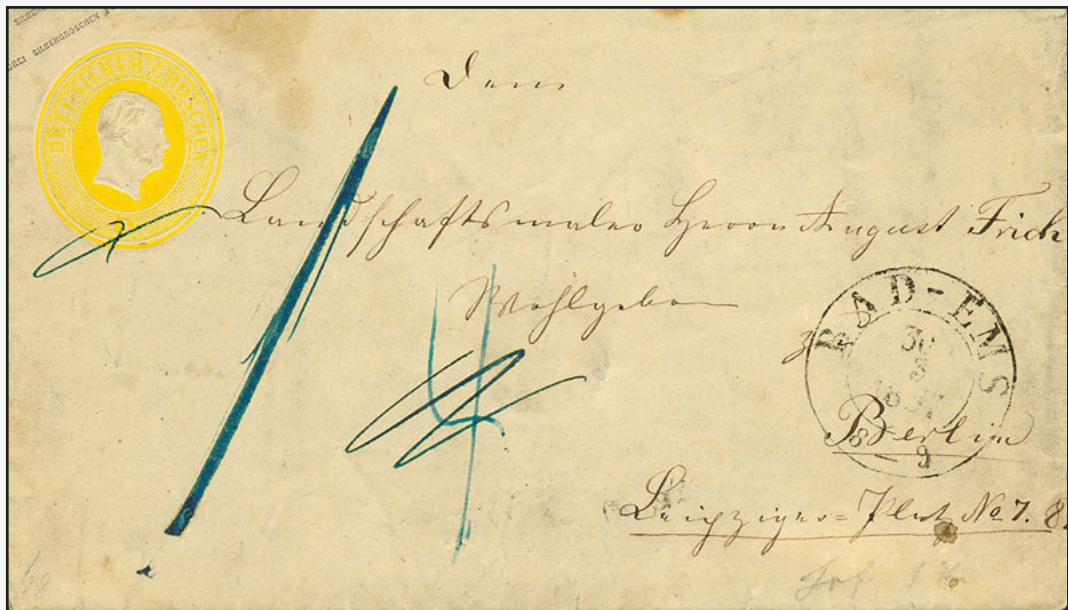 DREI SILBERGROSCHEN
DREI SILBER GROSCHEN
Dem
Landschaftsmaler Herrn August Frich
Wohlgeborn
z
BAD-EMS
30
8
8-9
Berlin
Leipziger=Platz No 7. 8.
1
4